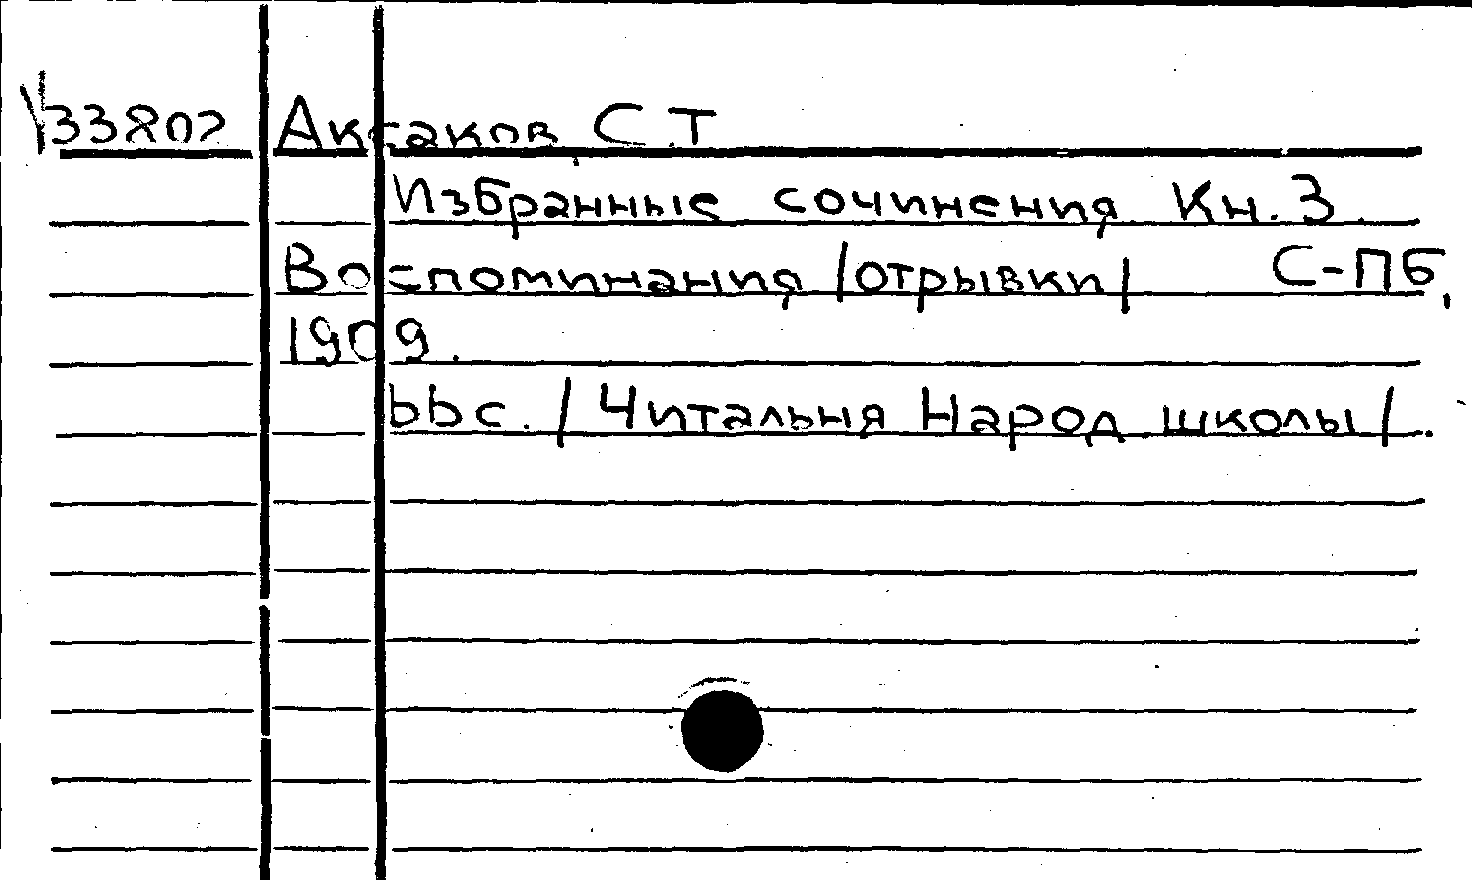 V33802 Аксаков, С.Т
Избранные сочинения Кн. 3.
Воспоминания /отрывки/ С-ПБ,
1909.
ььс. /Читальня Народ школы/.